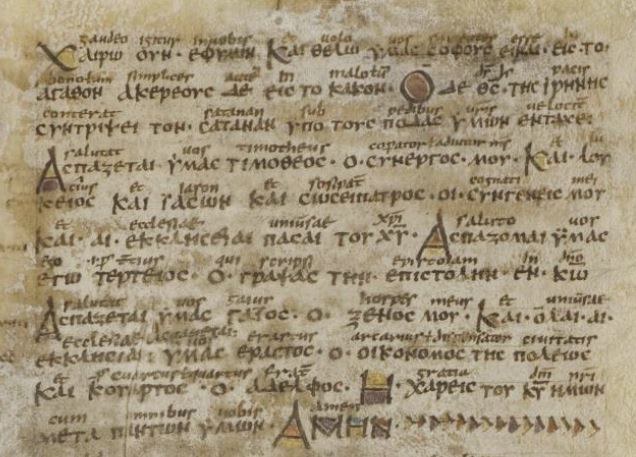 gaudeo igitur in uobis et uolo uos sapientes esse in
ΧΑΙΡΩ ΟΥΝ · ΕΦ ΥΜΙΝ ΚΑΙ ΘΕΛΩ ΥΜΑϹ ϹΟΦΟΥϹ ΕΙΝΑΙ · ΕΙϹ · ΤΟ ·
simplices in malo
ΑΓΑΘΟΝ ΑΚΕΡΕΟΥϹ ΔΕ ΕΙϹ ΤΟ ΚΑΚΟΝ · Ο ΔΕ ΘϹ · ΤΗϹ ΙΡΗΝΗϹ
conterat satanan sub pedibus uris
ϹΥΝΤΡΙΨΕΙ ΤΟΝ · ϹΑΤΑΝΑΝ ΥΠΟ ΤΟΥϹ ΠΟΔΑϹ ΥΜΩΝ ΕΝ ΤΑΧΕΙ
salutat uos timotheus
ΑϹΠΑΖΕΤΑΙ ΥΜΑϹ ΤΙΜΟΘΕΟϹ · Ο · ϹΥΝΕΡΓΟϹ · ΜΟΥ · ΚΑΙ · ΛΟΥ
cius et iason et cognati mei
ΚΕΙΟϹ ΚΑΙ ΙΑϹΩΝ ΚΑΙ ϹΩϹΕΙΠΑΤΡΟϹ · ΟΙ · ϹΥΝΓΕΝΕΙϹ ΜΟΥ
et ecclesiae uniuersae xpi saluto uos
ΚΑΙ · ΑΙ · ΕΚΚΛΗϹΕΙΑΙ ΠΑϹΑΙ ΤΟΥ ΧΥ · ΑϹΠΑΖΟΜΑΙ ΥΜΑϹ
ego tertius qui scripsi epistolam in dno
ΕΓΩ ΤΕΡΤΕΙΟϹ · Ο · ΓΡΑΨΑϹ ΤΗΝ · ΕΠΙϹΤΟΛΗΝ · ΕΝ · ΚΩ
salutat uos gaius hospes meus et uniuersae
ΑϹΠΑΖΕΤΑΙ ΥΜΑϹ ΓΑΙΟϹ · Ο · ΞΕΝΟϹ ΜΟΥ · ΚΑΙ · ΟΛΑΙ · ΑΙ ·
ecclesiae uos erastus arcarius dispensator ciuitatis
ΕΚΚΛΗϹΙΑΙ · ΥΜΑϹ ΕΡΑϹΤΟϹ · Ο · ΟΙΚΟΝΟΜΟϹ ΤΗϹ ΠΟΛΕΩϹ
et gratia dni nri
ΚΑΙ ΚΟΥΑΡΤΟϹ · Ο · ΑΔΕΛΦΟϹ · Η · ΧΑΡΕΙϹ ΤΟΥ ΚΥ ΗΜΩΝ
cum omnibus uobis amen
ΜΕΤΑ ΠΑΝΤΩΝ ΥΜΩΝ · ΑΜΗΝ ·